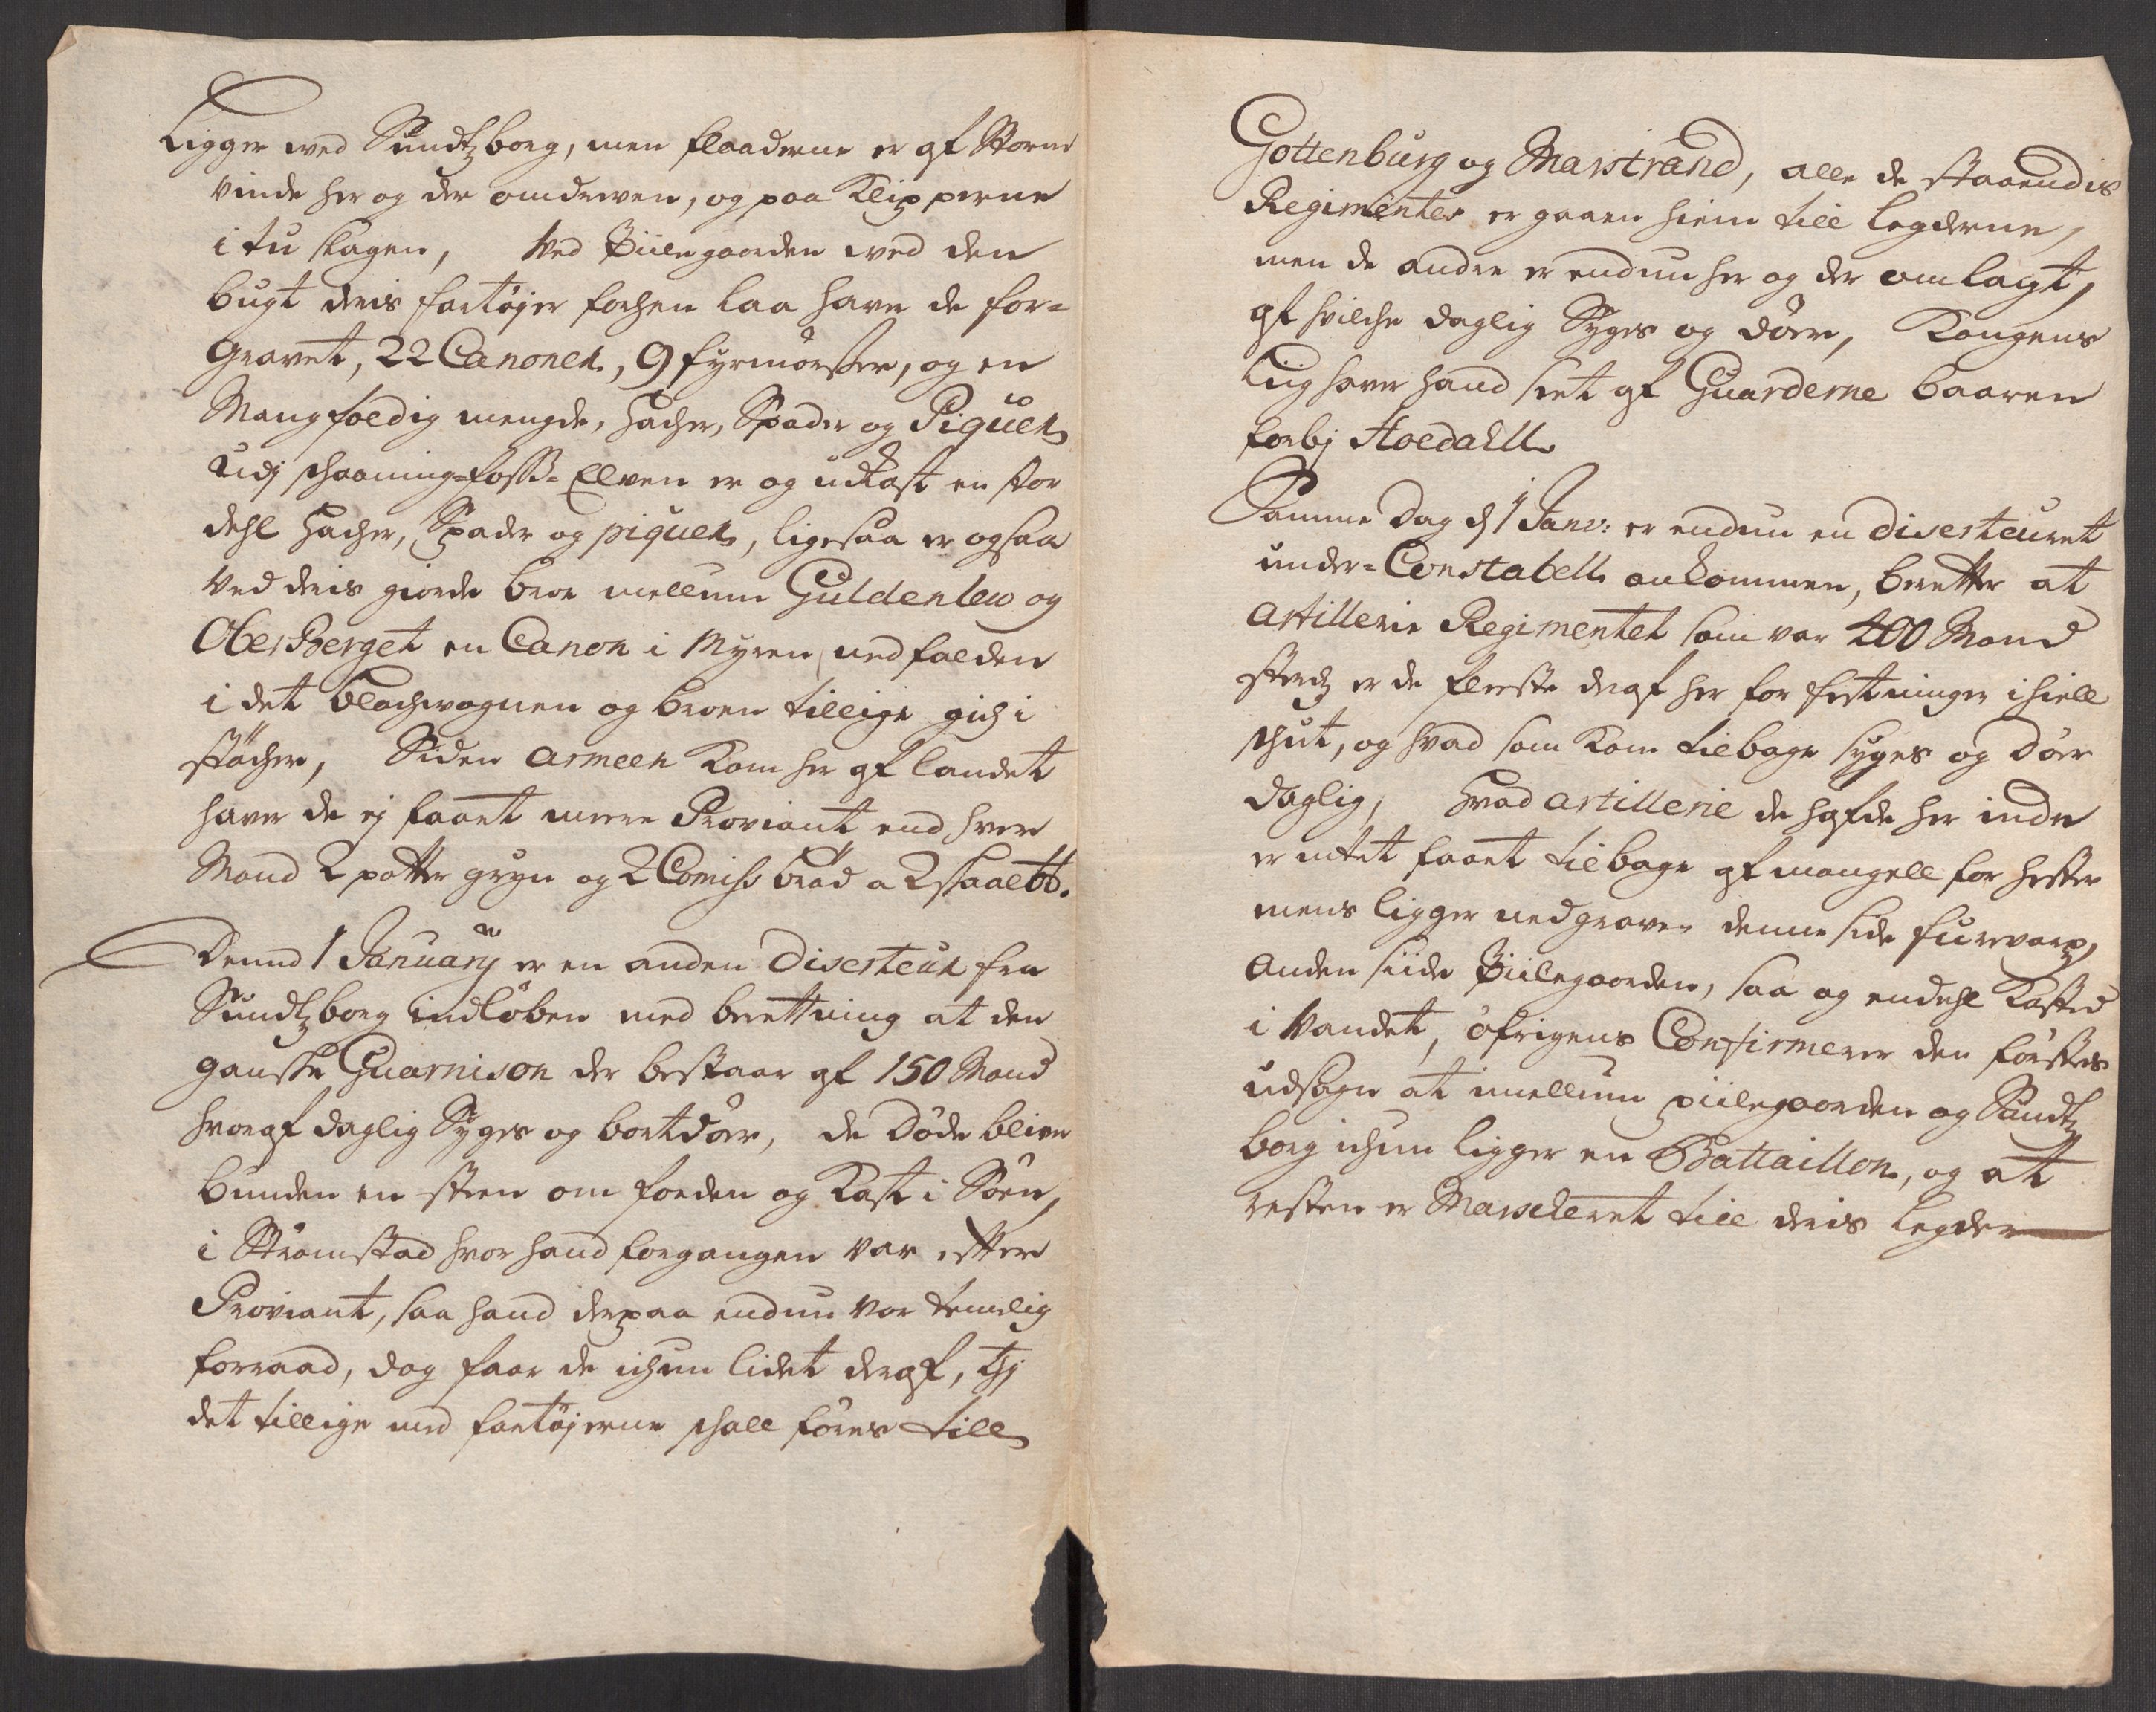 Ligger wed Sundtzborg, men flaaderne er af Storm
vinde her og der omdreven, og paa Klipperne
i tu slagen, Ved Piilegaarden wed den
bugt deris fartøjer forhen laa have de for-
Gravet, 22 Canoner, 9 fyrmörßer, og en
Mangfoldig mengde, Hacher, Spader og Piquer
Udj schaaning-foss-Elven er og udkast en stor
dehl Hacher, Spader og piquer, ligesaa er ogsaa
Ved deris giorde broe mellum Guldenlew og
OberBerget en Canon i Myren nedfalden
i det blochwognen og broen tillige gich i
støcher, Siden Armeen Kom her af landet
haver de ej faaet meere Proviant end hver
Mand 2 potter gryn og 2 Comiss bröd a 2 skaal℔.
Dennd 1 January er en anden Diserteur fra
Sundtzborg indløben med berettning at den
ganske Guarnison der bestaar af 150 Mand
hvoraf daglig Syges og bortdöer, de Døde blive
bunden en steen om foeden og Kast i Söen,
i Strömstad hvor hand forgangen var efter
Proviant, saa hand derpaa endnu var temelig
forraad, dog faar de ichun lidet deraf, thj
det tillige med fartøjerne schall föres till
Gottenburg og Marstrand, alle de staaendis
Regimenter er gaaen hiem till legderne,
men de andre er endnu her og der omlagt,
af hvilche daglig Syges og döer, Kongens
Liig haver hand seet af Guarderne baaren
forbj Hoedahll.
Samme Dag d 1 Janv: er endnu en diserteuret
under-Constabell ankommen, beretter at
Artillerie Regimentet som var 400 Mand
sterch er de fleeste deraf her for festninger ihiell
schut, og hvad som Kom tilbage syges og döer
daglig, hvad artillerie de hafde her inde
er intet faaet tilbage af mangell for hester
mens ligger nedgraven denne side furevarp,
anden siide Piilegaarden, saa og endehl Kasted
i Vandet, öfrigens Confirmerer den förstes
udsagn at imellum piilegaarden og Sundtz
borg ichun ligger en Battaillon, og at
resten er Marscheret till deris legder